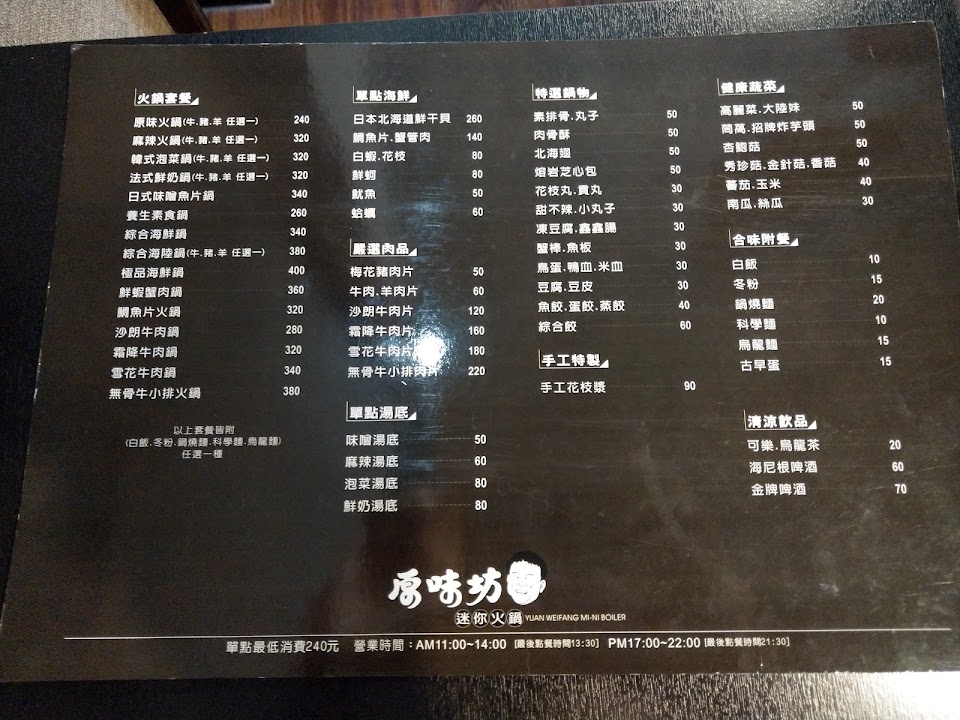 火鍋套餐
原味火鍋(牛.豬.羊 任選一) 240
麻辣火鍋(牛.豬.羊 任選一) 320
韓式泡菜鍋(牛.豬.羊 任選一) 320
法式鮮奶鍋(牛.豬.羊 任選一) 320
日式味噌魚片鍋 340
養生素食鍋 260
綜合海鮮鍋 340
綜合海陸鍋(牛.豬.羊 任選一) 380
極品海鮮鍋 400
鮮蝦蟹肉鍋 360
鯛魚片火鍋 320
沙朗牛肉鍋 280
霜降牛肉鍋 320
雪花牛肉鍋 340
無骨牛小排火鍋 380
以上套餐皆附
(白飯.冬粉.鍋燒麵.科學麵.烏龍麵)
任選一種
單點海鮮
日本北海道鮮干貝 260
鯛魚片.蟹管肉 140
白蝦.花枝 80
鮮蚵 80
魷魚 50
蛤蠣 60
嚴選肉品
梅花豬肉片 50
牛肉.羊肉片 60
沙朗牛肉片 120
霜降牛肉片 160
雪花牛肉片 180
無骨牛小排肉片 220
單點湯底
味噌湯底 50
麻辣湯底 60
泡菜湯底 80
鮮奶湯底 80
特選鍋物
素排骨.丸子 50
肉骨酥 50
北海翅 50
熔岩芝心包 50
花枝丸.貢丸 30
甜不辣.小丸子 30
凍豆腐.鑫鑫腸 30
蟹棒.魚板 30
鳥蛋.鴨血.米血 30
豆腐.豆皮 30
魚餃.蛋餃.蒸餃 40
綜合餃 60
手工特製
手工花枝漿 90
健康蔬菜
高麗菜.大陸妹 50
茼蒿.招牌炸芋頭 50
杏鮑菇 50
秀珍菇.金針菇.香菇 40
蕃茄.玉米 40
南瓜.絲瓜 30
合味附餐
白飯 10
冬粉 15
鍋燒麵 20
科學麵 10
烏龍麵 15
古早蛋 15
清涼飲品
可樂.烏龍茶 20
海尼根啤酒 60
金牌啤酒 70
原味坊
迷你火鍋 YUAN WEIFANG MI-NI BOILER
單點最低消費240元 營業時間：AM11:00~14:00 [最後點餐時間13:30] PM17:00~22:00 [最後點餐時間21:30]